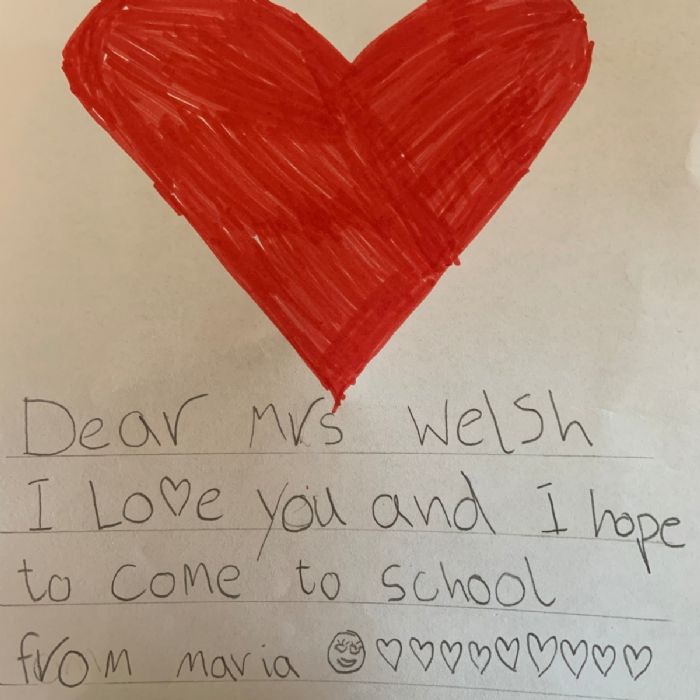 Dear Mrs Welsh
I Lo♡e you and I hope
to come to school
from maria ☺♡♡♡♡♡♡♡♡♡